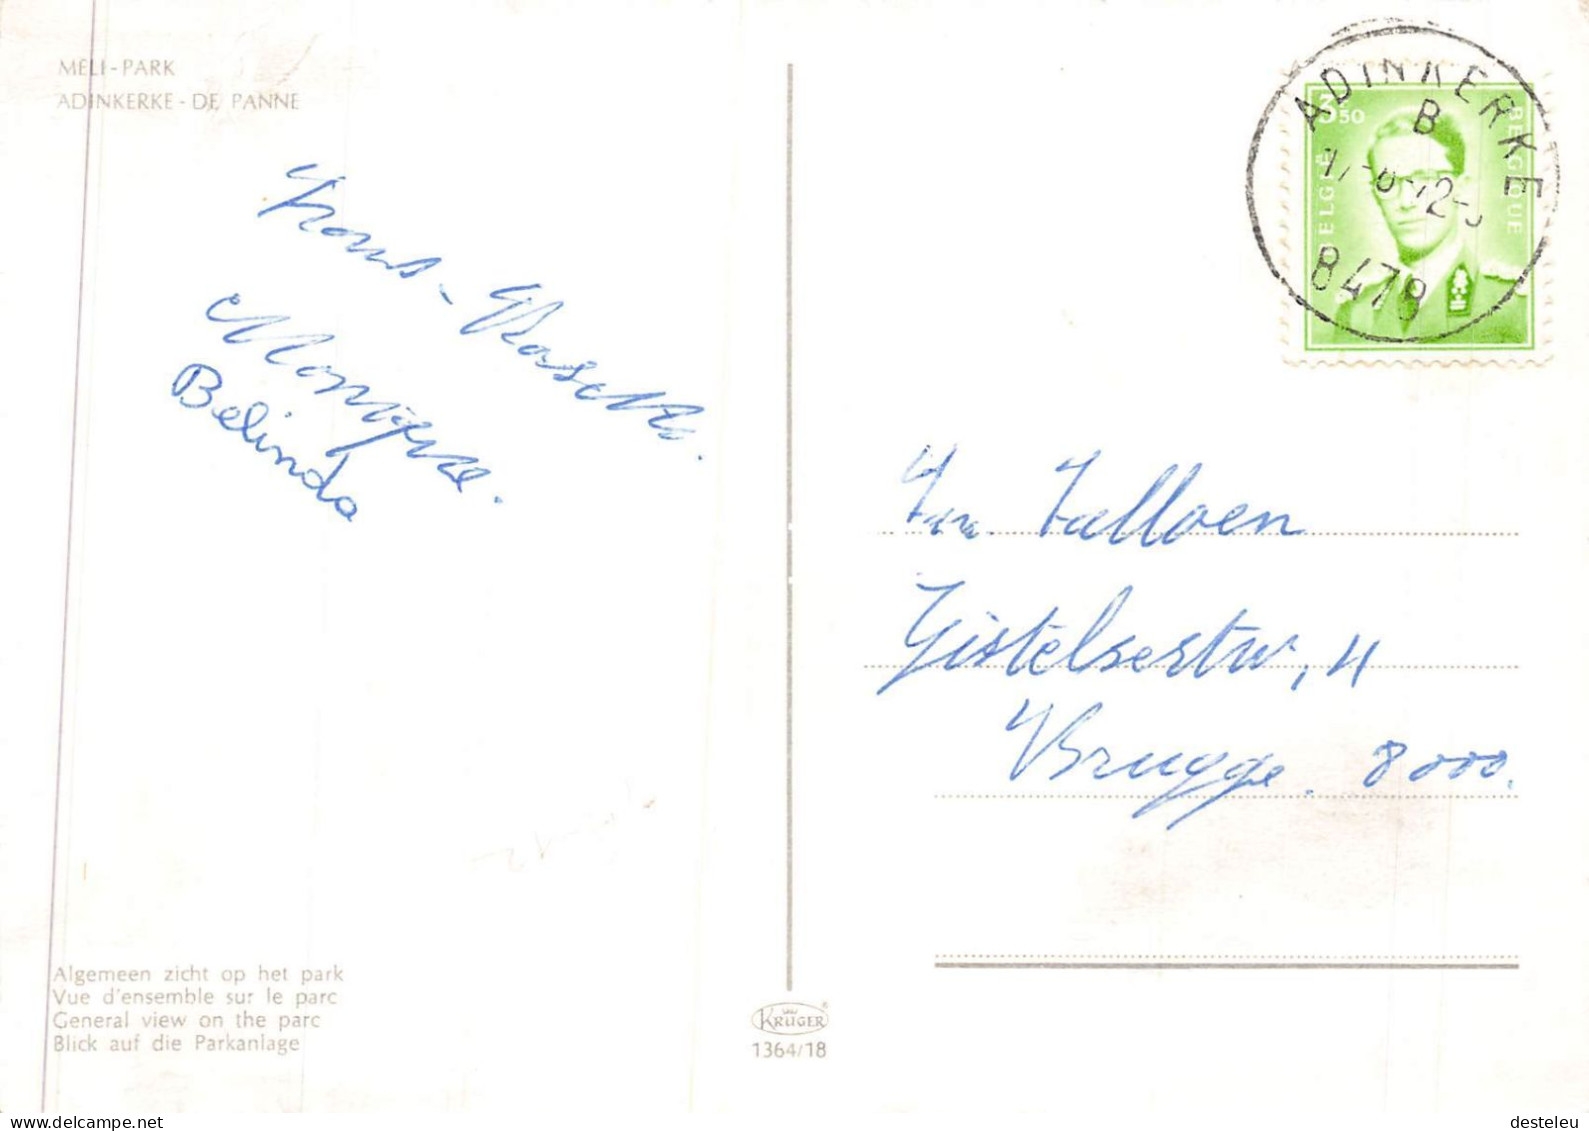 MELI-PARK
ADINKERKE - DE PANNE
Monique.
Belinda
Algemeen zicht op het park
Vue d'ensemble sur le parc
General view on the parc
Blick auf die Parkanlage
KRÜGER
1364/18
ADINKERKE
B
8478
3,50
BELGIË
BELGIQUE
Talloen
Gistelsestw, 4
Brugge. 8000.
desteleu